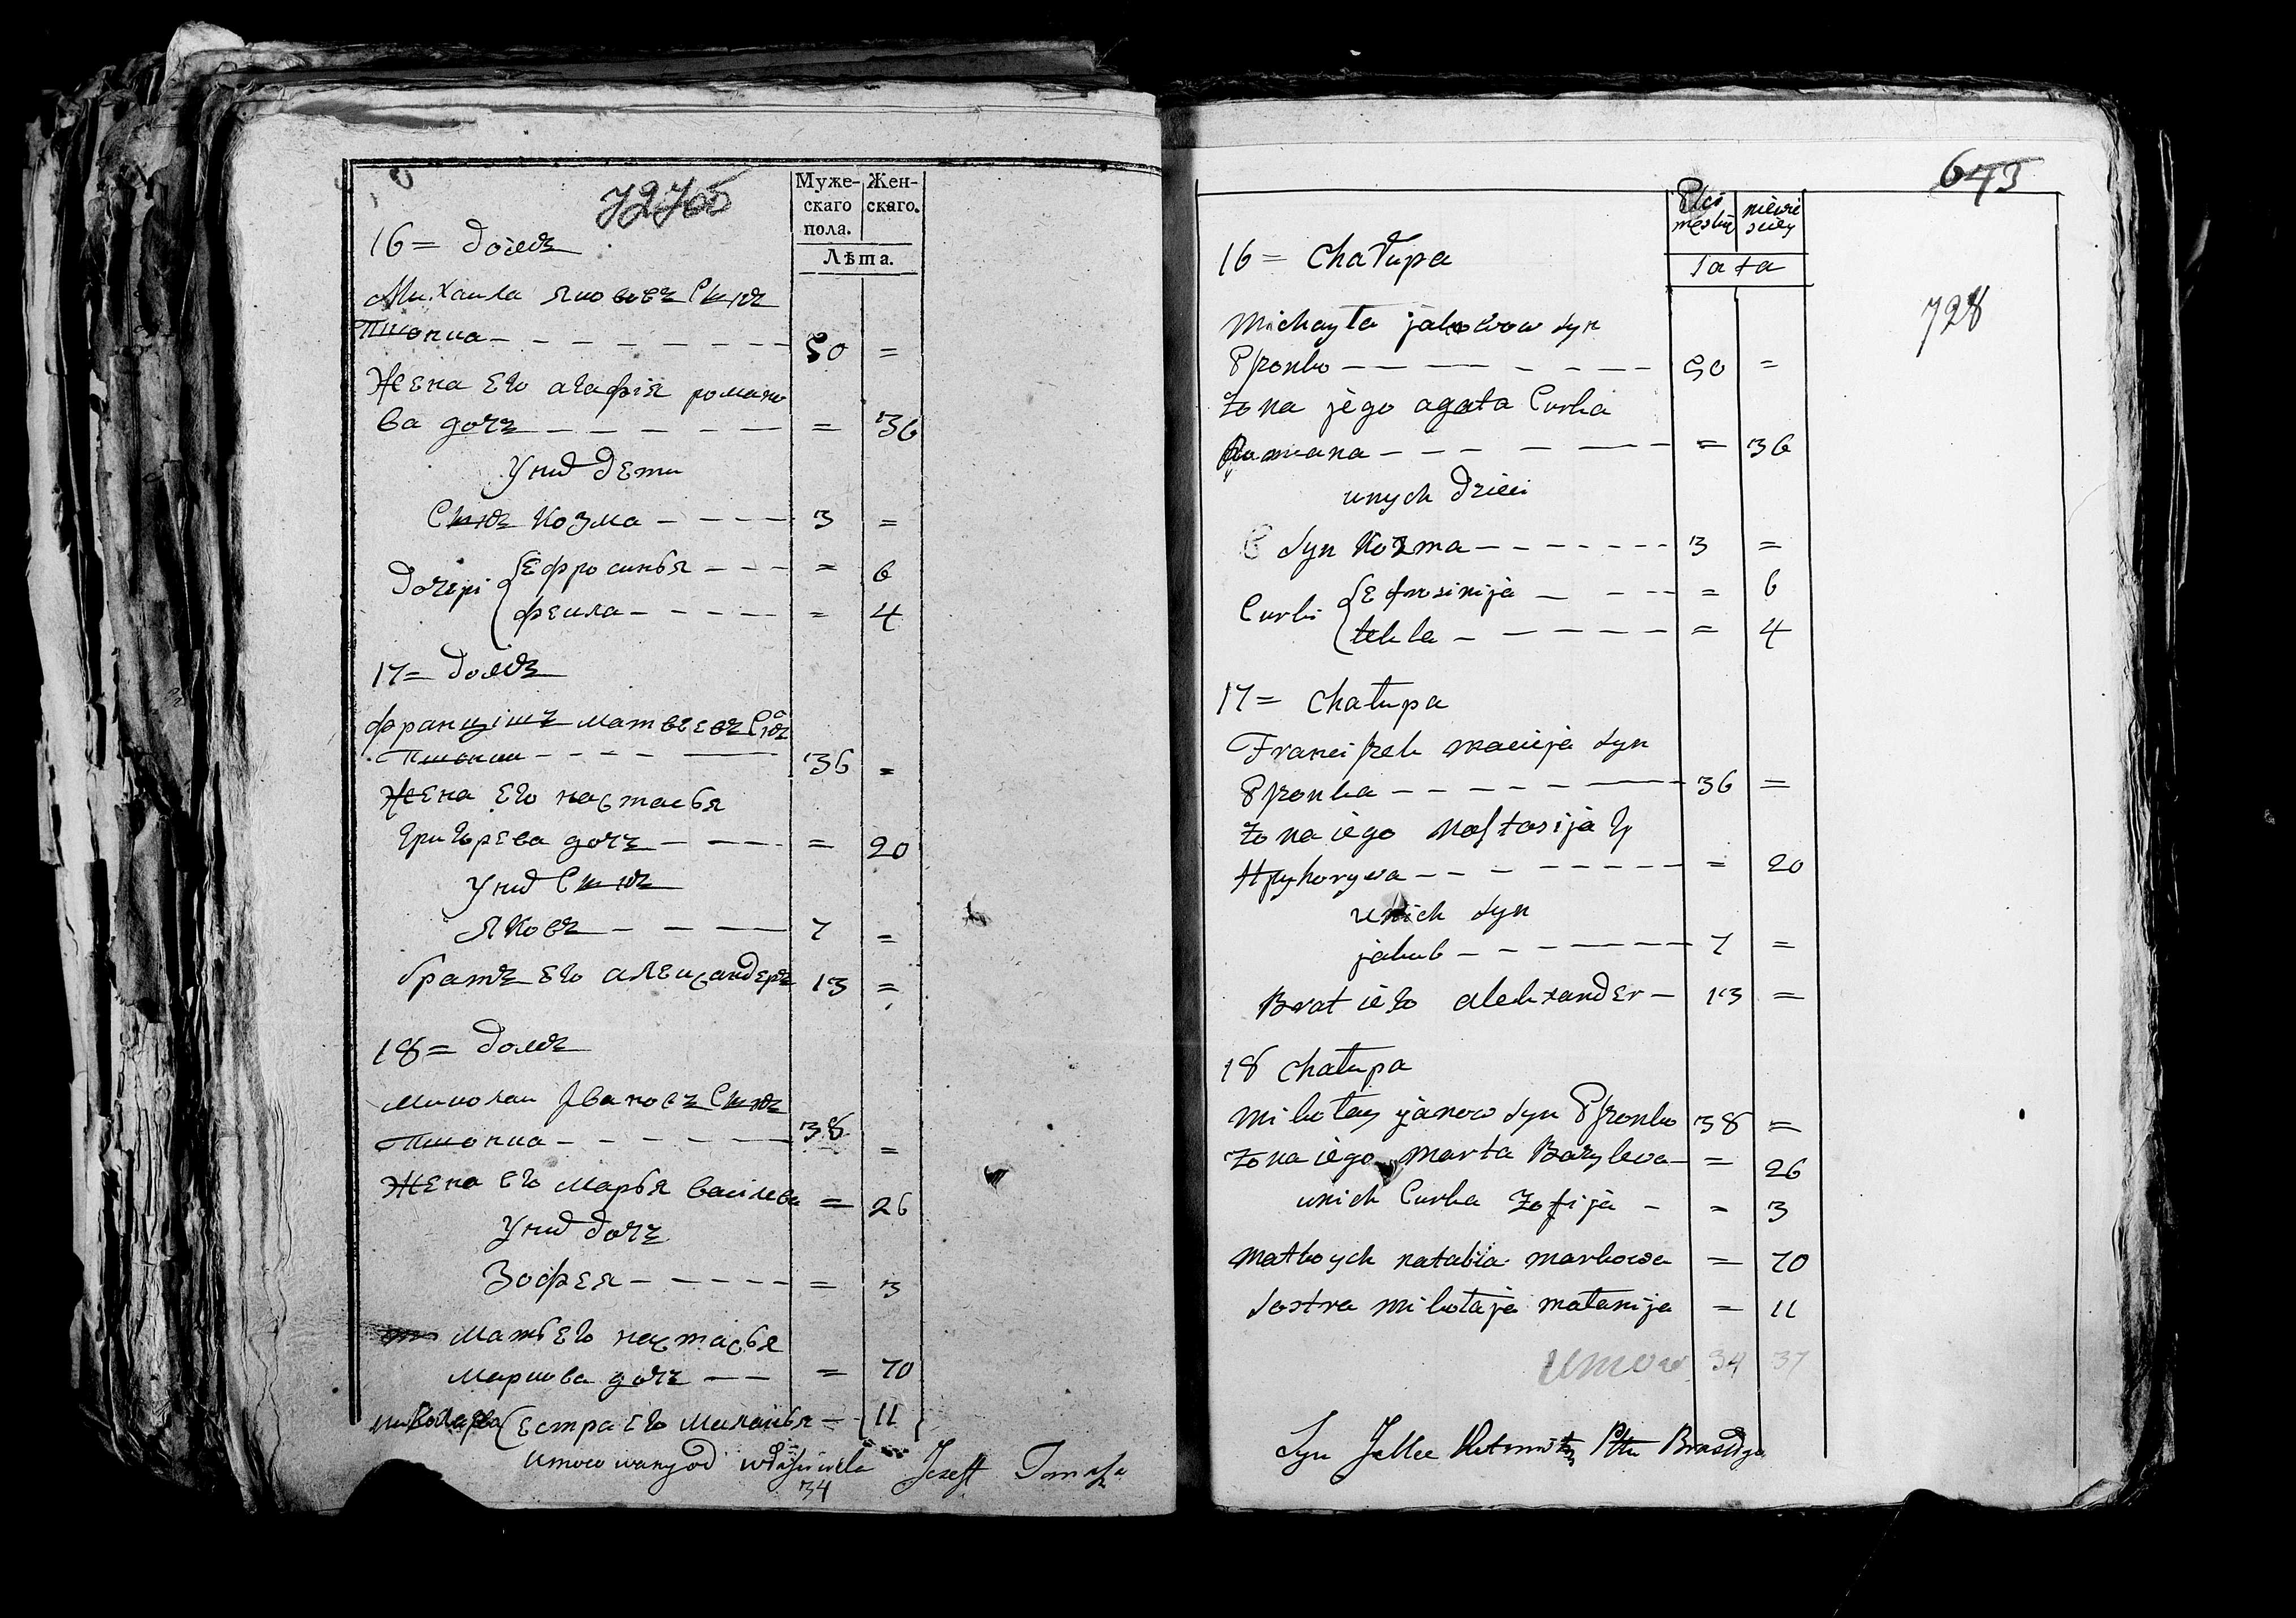 727об
Муже- Жен-
скаго скаго.
пола.
Лѣта.
16 = домъ
Михаила Яковъ Сынъ
Пшонка 50 =
Жена Его агафія романо
ва дочъ = 36
У них дети
Сынъ Козма 3 =
Дочери Ефросинья = 6
Фекла = 4
17 = домъ
Францішъ Матвеевъ Сынъ
Пшонки 36 =
Жена Его настасья
григорева дочъ = 20
У них Сынъ
Яковъ 7 =
братъ Его александеръ 13 =
18 = домъ
Миколаи Ивановъ Сынъ
Пшонка 38 =
Жена Его Марья василева = 26
У них дочъ
Зофея = 3
Мать Его настасья
Маркова дочъ = 70
Миколаева Сестра Его Миланья 11
34 Jozeff Tomasz
643
728
Płci męskiej niewieściey
Lata
16 = Chałupa
Michayła jakowow syn
Pszonko 50 =
żona jego agata Curka
Romana = 36
unych dzieci
Syn Kozma 3 =
Curki Efrosinija = 6
tekla = 4
17 = Chałupa
Franciszek macieja syn
Pszonka 36 =
żona iego Nastasija
Hryhorywa = 20
unich syn
jakub 7 =
Brat iego alekxander 13 =
18 Chałupa
mikołay janow syn Pszonko 38 =
żona iego marta Bazylewa = 26
unich Curka zofija = 3
matkoych natalia markowa = 70
sostra mikołaja małanija = 11
umow 34 37